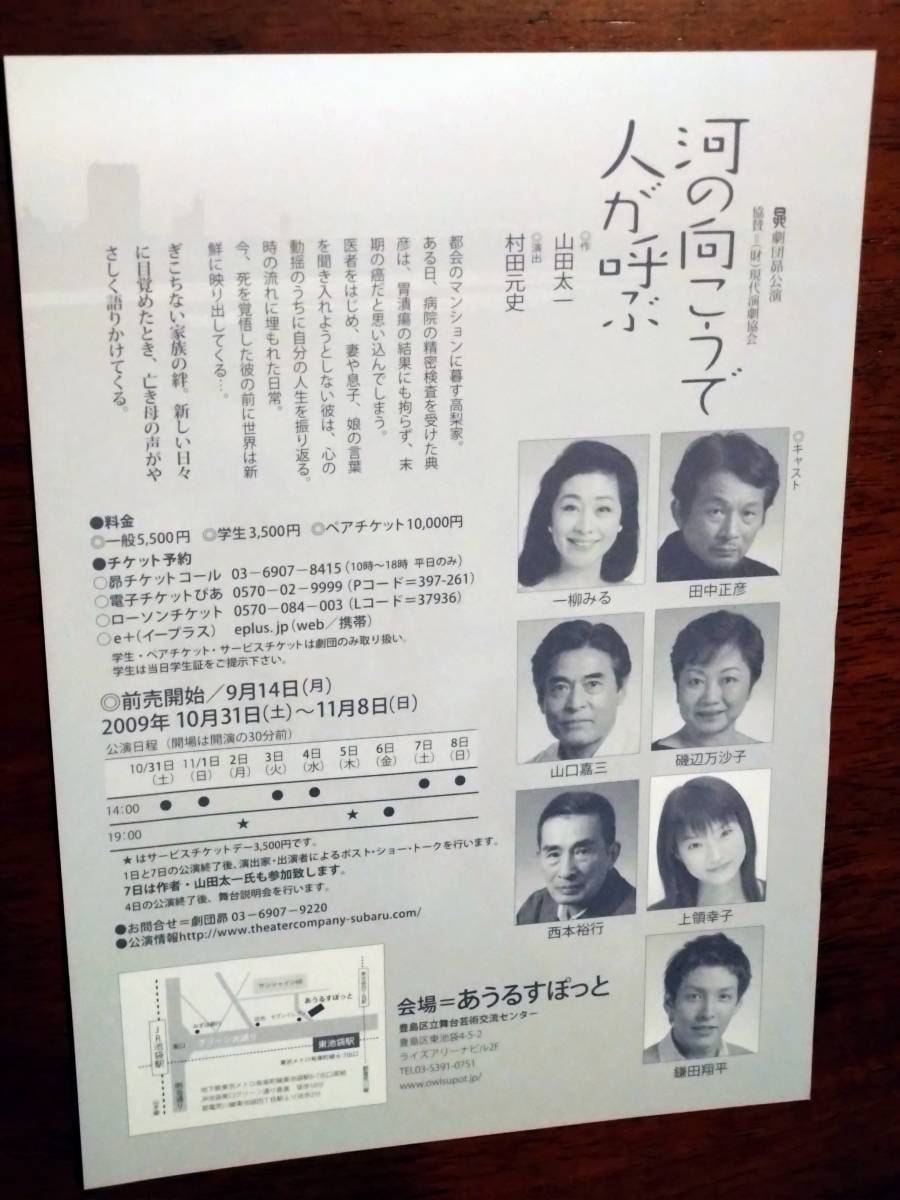 昴 劇団昴公演
協賛=(財)現代演劇協会
河の向こうで
人が呼ぶ
◎作
山田太一
◎演出
村田元史
都会のマンションに暮す高梨家。
ある日、病院の精密検査を受けた典
彦は、胃潰瘍の結果にも拘らず、末
期の癌だと思い込んでしまう。
医者をはじめ、妻や息子、娘の言葉
を聞き入れようとしない彼は、心の
動揺のうちに自分の人生を振り返る。
時の流れに埋もれた日常。
今、死を覚悟した彼の前に世界は新
鮮に映り出してくる…。
ぎこちない家族の絆。新しい日々
に目覚めたとき、亡き母の声がや
さしく語りかけてくる。
◎キャスト
一柳みる
田中正彦
山口嘉三
磯辺万沙子
西本裕行
上領幸子
鎌田翔平
●料金
◎一般5,500円 ◎学生3,500円 ◎ペアチケット10,000円
●チケット予約
○昴チケットコール 03-6907-8415(10時〜18時 平日のみ)
○電子チケットぴあ 0570-02-9999(Pコード=397-261)
○ローソンチケット 0570-084-003(Lコード=37936)
○e+(イープラス) eplus.jp(web/携帯)
学生・ペアチケット・サービスチケットは劇団のみ取り扱い。
学生は当日学生証をご提示下さい。
◎前売開始/9月14日(月)
2009年10月31日(土)〜11月8日(日)
公演日程(開場は開演の30分前)
10/31日 11/1日 2日 3日 4日 5日 6日 7日 8日
(土) (日) (月) (火) (水) (木) (金) (土) (日)
14:00 ● ● ● ● ● ●
19:00 ★ ★ ●
★はサービスチケットデー3,500円です。
1日と7日の公演終了後、演出家・出演者によるポスト・ショー・トークを行います。
7日は作者・山田太一氏も参加致します。
4日の公演終了後、舞台説明会を行います。
●お問合せ=劇団昴 03-6907-9220
●公演情報http://www.theatercompany-subaru.com/
会場=あうるすぽっと
豊島区立舞台芸術交流センター
豊島区東池袋4-5-2
ライズアリーナビル2F
TEL03-5391-0751
www.owlspot.jp/
サンシャイン60
あうるすぽっと
みずほ銀行
東口
グリーン大通り
東池袋駅
JR池袋駅
明治通り